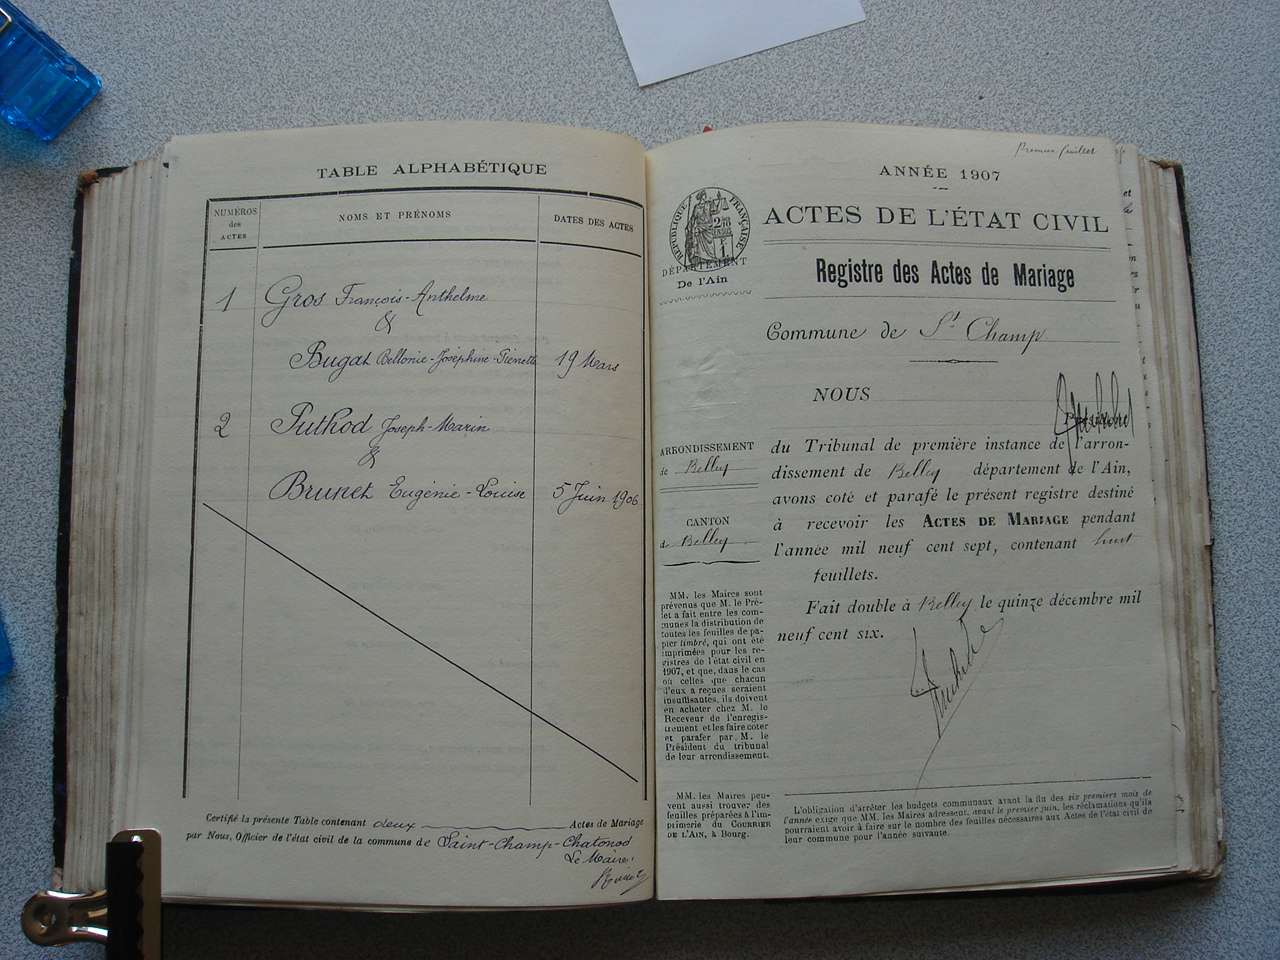 TABLE ALPHABÉTIQUE
NUMÉROS
des
ACTES
NOMS ET PRÉNOMS
DATES DES ACTES
1
Gros François-Anthelme
&
Bugat Bellonie-Joséphine-Pienette
19 Mars
2
Puthod Joseph-Marin
&
Brunet Eugénie-Louise
5 Juin 1906
Certifié la présente Table contenant deux Actes de Mariage
par Nous, Officier de l'état civil de la commune de Saint-Champ-Chatonod
Le Maire:
Premier feuillet
ANNÉE 1907
RÉPUBLIQUE FRANÇAISE
ACTES DE L'ÉTAT CIVIL
DÉPARTEMENT
De l'Ain
Registre des Actes de Mariage
Commune de St Champ
NOUS
ARRONDISSEMENT
de Belley
CANTON
de Belley
du Tribunal de première instance de l'arron-
dissement de Belley département de l'Ain,
avons coté et parafé le présent registre destiné
à recevoir les ACTES DE MARIAGE pendant
l'année mil neuf cent sept, contenant huit
feuillets.
Fait double à Belley le quinze décembre mil
neuf cent six.
MM. les Maires sont
prévenus que M. le Pré-
fet a fait entre les com-
munes la distribution de
toutes les feuilles de pa-
pier timbré, qui ont été
imprimées pour les re-
gistres de l'état civil en
1907, et que, dans le cas
où celles que chacun
d'eux a reçues seraient
insuffisantes, ils doivent
en acheter chez M. le
Receveur de l'enregis-
trement et les faire coter
et parafer par M. le
Président du tribunal
de leur arrondissement.
MM. les Maires peu-
vent aussi trouver des
feuilles préparées à l'im-
primerie du COURRIER
DE L'AIN, à Bourg.
L'obligation d'arrêter les budgets communaux avant la fin des six premiers mois de
l'année exige que MM. les Maires adressent, avant le premier juin, les réclamations qu'ils
pourraient avoir à faire sur le nombre des feuilles nécessaires aux Actes de l'état civil de
leur commune pour l'année suivante.